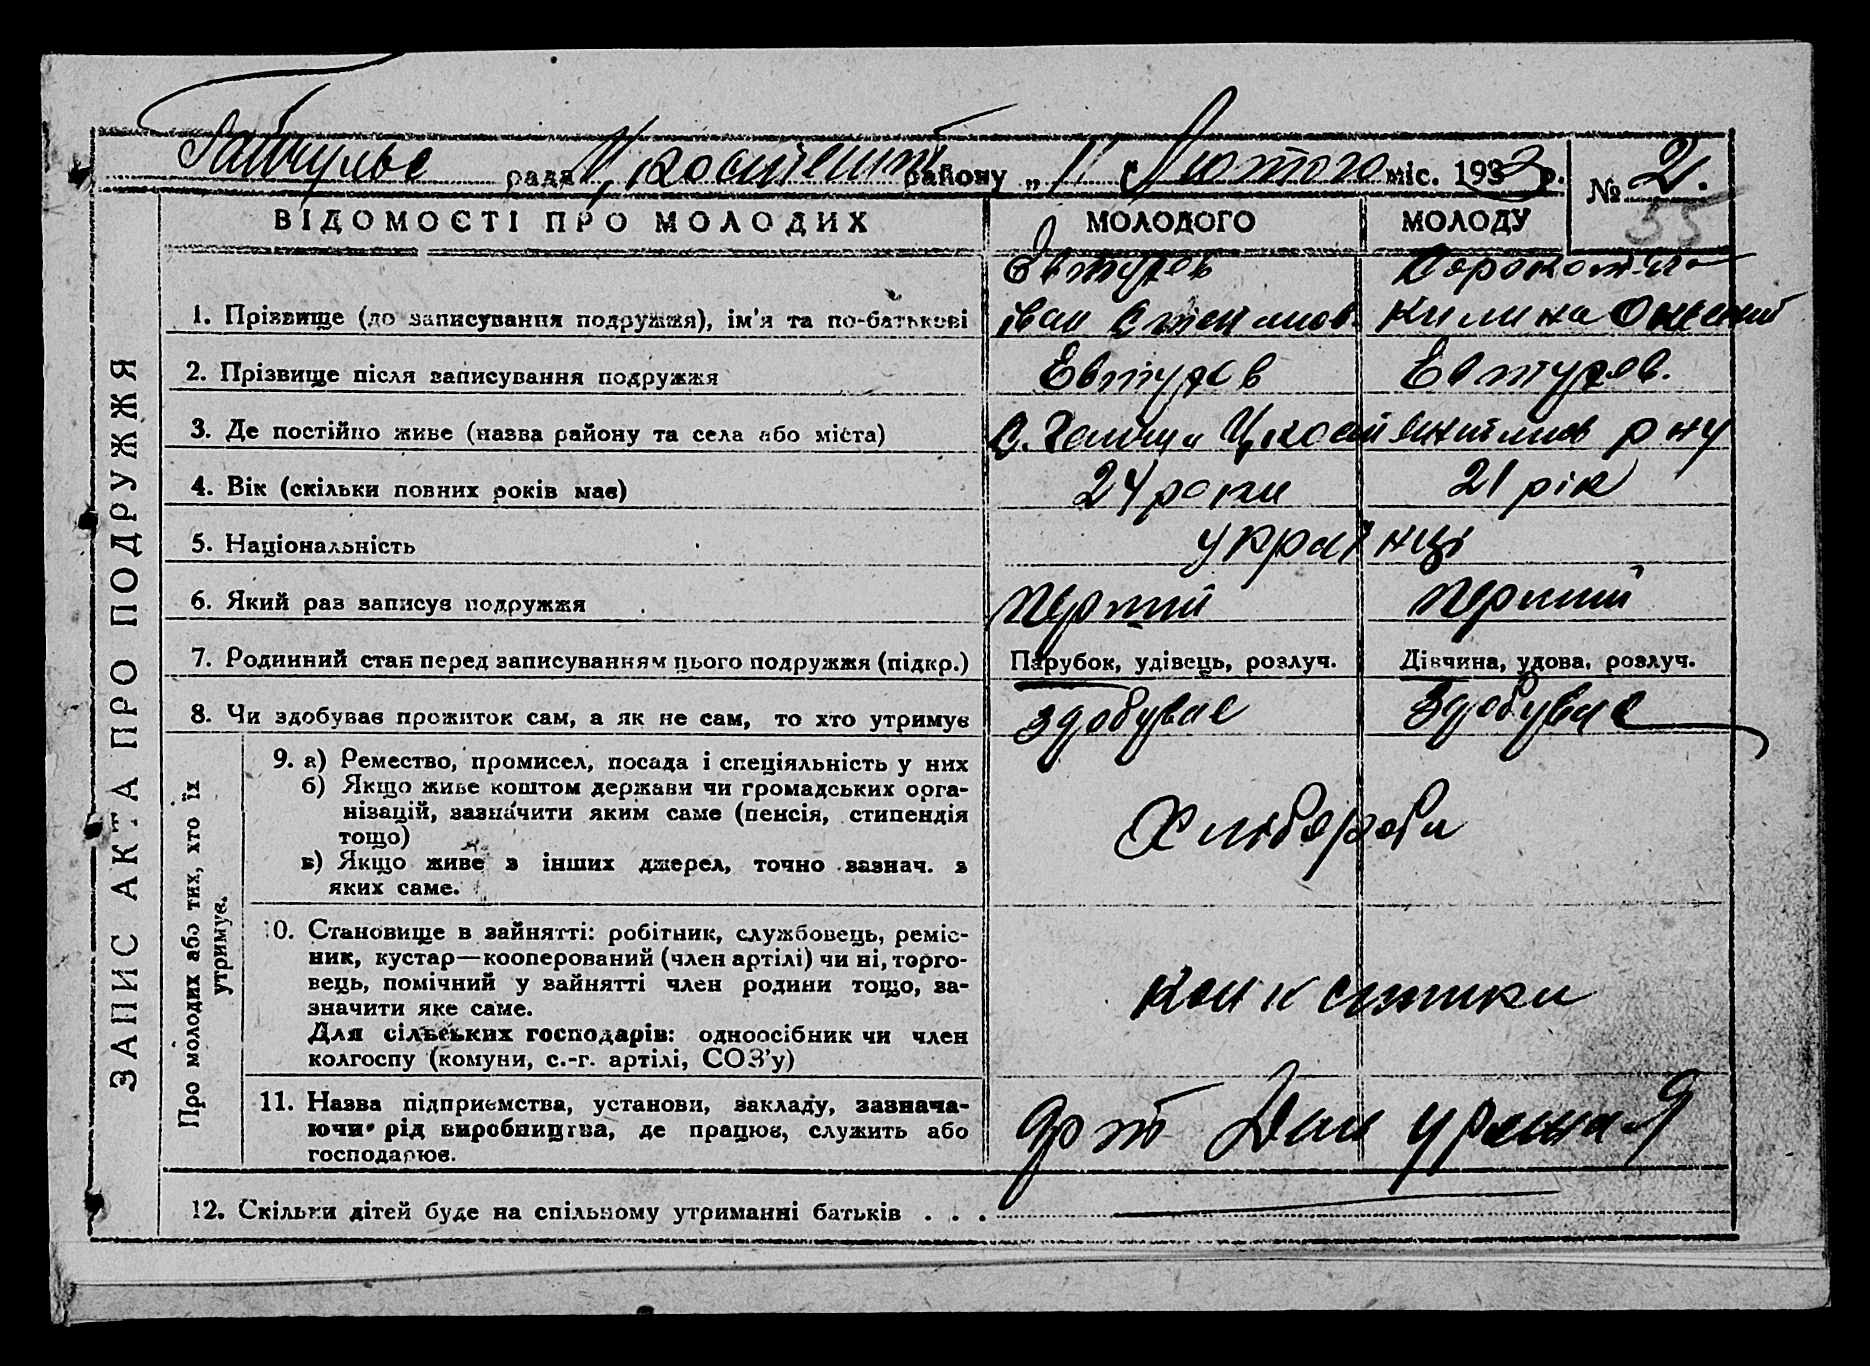 рада району „11" Лютого міс. 1933 р.
№ 2.
35
ВІДОМОСТІ ПРО МОЛОДИХ МОЛОДОГО МОЛОДУ
ЗАПИС АКТА ПРО ПОДРУЖЖЯ
Евтухов
1. Прізвище (до записування подружжя), ім'я та по-батькові Іван Килина
2. Прізвище після записування подружжя Евтухов Евтухов.
3. Де постійно живе (назва району та села або міста) С. р ну
4. Вік (скільки повних років має) 24 роки 21 рік
5. Національність українці
6. Який раз записує подружжя перший перший
7. Родинний стан перед записуванням цього подружжя (підкр.) Парубок, удівець, розлуч. Дівчина, удова, розлуч.
8. Чи здобуває прожиток сам, а як не сам, то хто утримує здобуває здобуває
Про молодих або тих, хто їх
утримує.
9. а) Ремество, промисел, посада і спеціяльність у них
б) Якщо живе коштом держави чи громадських орга-
нізацій, зазначити яким саме (пенсія, стипендія
тощо)
в) Якщо живе з інших джерел, точно зазнач. з
яких саме.
Хлібороби
10. Становище в зайнятті: робітник, службовець, реміс-
ник, кустар—кооперований (член артілі) чи ні, торго-
вець, помічний у зайнятті член родини тощо, за-
значити яке саме.
Для сільських господарів: одноосібник чи член
колгоспу (комуни, с.-г. артілі, СОЗ'у)
11. Назва підприємства, установи, закладу, зазнача-
ючи рід виробництва, де працює, служить або
господарює.
урожая
12. Скільки дітей буде на спільному утриманні батьків . . .